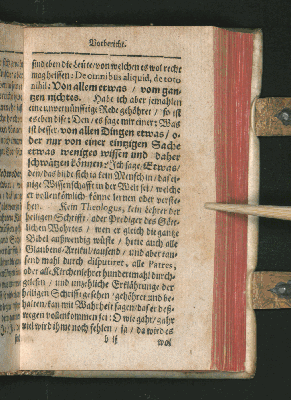 Vorbericht.
finden die Leute/ von welchen es wol recht
mag heissen: De omnibus aliquid, de toto
nihil: Von allem etwas / vom gan-
tzen nichtes. Habe ich aber jemahlen
eine unvernünftige Rede gehöret / so ist
es eben diese: Den / es sage mir einer: Was
ist besser von allen Dingen etwas / o-
der nur von einer einzigen Sache
etwas weniges wissen und daher
schwätzen können: Ich sage, Etwas/
den / das bilde sich ja kein Mensch ein / daß ei-
nige Wissenschafft in der Welt sei / welche
er vollenkömlich könne lernen oder verste-
hen. Kein Theologus, kein Lehrer der
heiligen Schrifft / oder Prediger des Göt-
lichen Wohrtes / wen er gleich die gantze
Bibel außwendig wüste / hette auch alle
Glaubens-Artikul / tausend / und aber tau-
send mahl durch disputiret, alle Patres,
oder alte Kirchenlehrer hundertmahl durch-
gelesen / und ungehliche Erklährunge der
heiligen Schrifft gesehen / gehöret und be-
halten / kan mit Wahrheit sagen / daß er deß-
wegen vollenkommen sei: O wie gahr / gahr
viel wird ihme noch fehlen / ja / da wird es
b ij wol